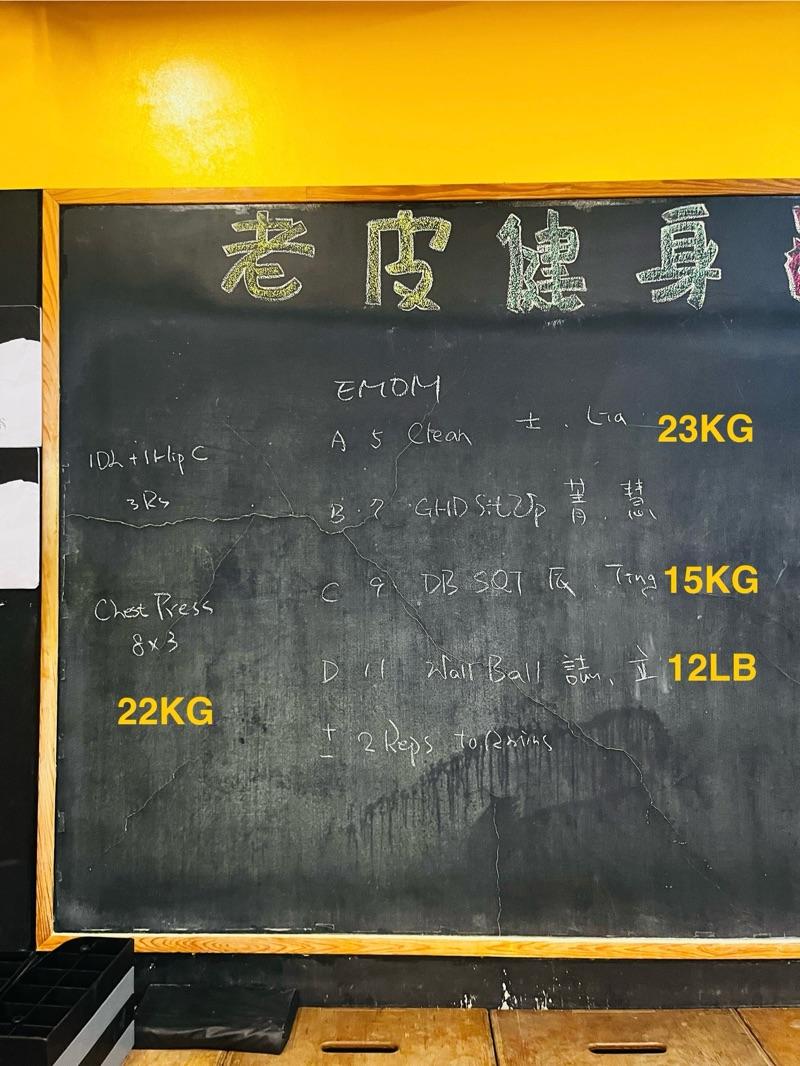 老皮健身
1DL + 1Hip C
3Rs
Chest Press
8x3
22KG
EMOM
A 5 Clean 士. Lia 23KG
B. 7 GHD Sit Up 菁. 慧
C 9 DB SQT Ting 15KG
D 11 Wall Ball 立 12LB
± 2 Reps to